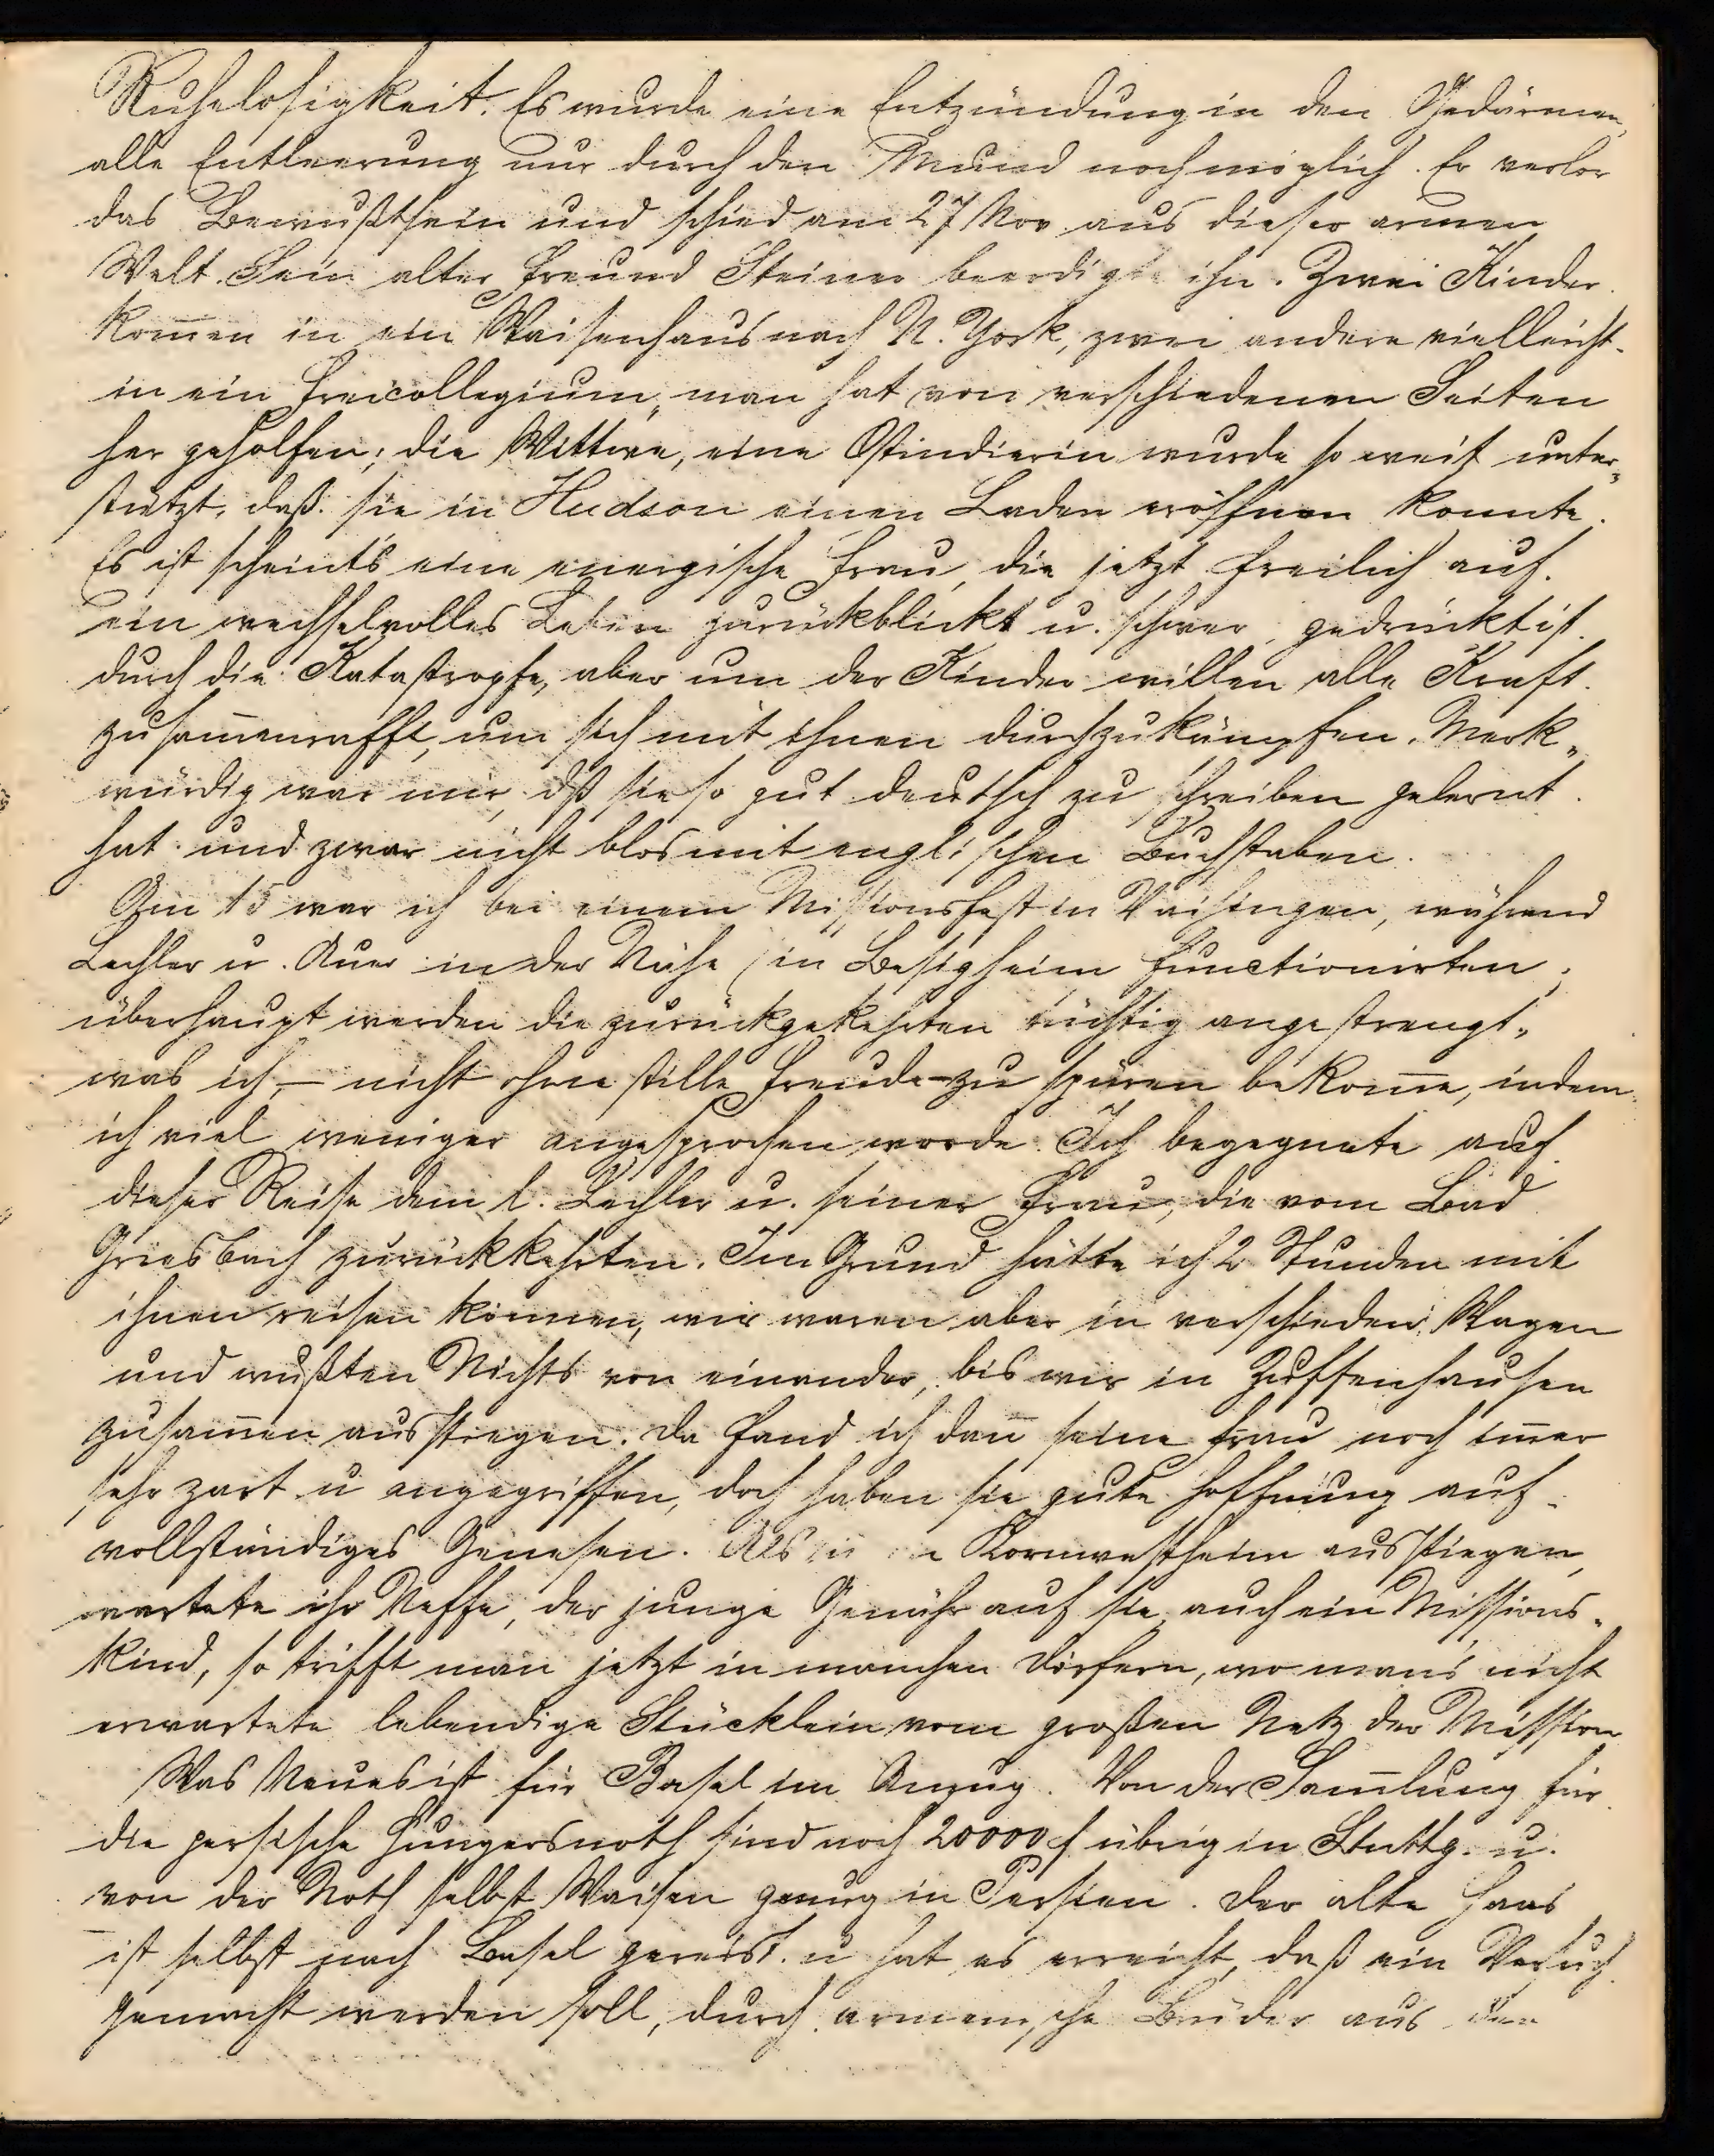 Ruhelosigkeit. Es wurde eine Entzündung in den Gedärmen,
alle Entleerung nur durch den Mund noch möglich. Er verlor
das Bewußtsein und schied am 27 Nov aus dieser armen
Welt. Sein alter Freund Steiner beerdigte ihn. Zwei Kinder
kom̄en in ein Waisenhaus nach N. York, zwei andere vielleicht
in ein Freicollegium, man hat von verschiedenen Seiten
her geholfen; die Wittwe, eine Ostindierin wurde so weit unter„
stützt, daß sie in Hudson einen Laden eröffnen konnte.
Es ist scheints eine energische Frau, die jetzt freilich auf
ein wechselvolles Leben zurückblickt u. schwer gedrückt ist
durch die Katastrophe, aber um der Kinder willen alle Kraft
zusam̄enrafft, um sich mit ihnen durchzukämpfen. Merk„
würdig war mir, dß sie so gut deutsch zu schreiben gelernt
hat und zwar nicht blos mit englischen Buchstaben.
Am 15 war ich bei einem Missionsfest in Vaihingen, während
Lechler u. Auer in der Nähe in Besigheim functionirten,
überhaupt werden die zurückgekehrten tüchtig angestrengt,
was ich – nicht ohne stille Freude – zu spüren bekom̄e, indem
ich viel weniger angesprochen werde. Ich begegnete auf
dieser Reise dem l. Lechler u. seiner Frau, die vom Bad
Griesbach zurückkehrten. Im Grund hätte ich 2 Stunden mit
ihnen reisen können, wir waren aber in verschieden. Wagen
und wußten Nichts von einander, bis wir in Zuffenhausen
zusam̄en ausstiegen. Da fand ich dan̄ seine Frau noch im̄er
sehr zart u angegriffen, doch haben sie gute Hoffnung auf
vollständiges Genesen. Als in Kornwestheim ausstiegen,
wartete ihr Neffe, der junge Genähr auf sie, auch ein Missions„
kind, so trifft man jetzt in manchen Dörfern, wo mans nicht
erwartete lebendige Stücklein vom großen Netz der Mission.
Was Neues ist für Basel im Anzug. Von der Sam̄lung für
die persische Hungersnoth sind noch 20000 f übrig in Stuttg. u.
von der Noth selbst Waisen genug in Persien. Der alte Haas
ist selbst nach Basel gereist u hat es erreicht, daß ein Versuch
gemacht werden soll, durch armenische Brüder aus den